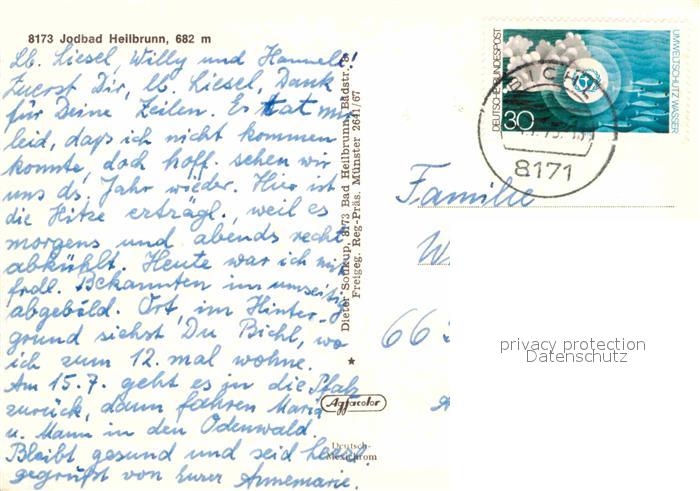 8173 Jodbad Heilbrunn, 682 m
Lb. Liesel, Willy und Hannele!
Zuerst Dir, lb. Liesel, Dank
für Deine Zeilen. Es tat mir
leid, daß ich nicht kommen
konnte, doch hoff. sehen wir
uns ds. Jahr wieder. Hier ist
die Hitze erträgl., weil es
morgens und abends recht
abkühlt. Heute war ich mit
frdl. Bekannten im umseitig
abgebild. Ort, im Hinter-
grund siehst Du Bichl, wo
ich zum 12. mal wohne.
Am 15.7. geht es in die Pfalz
zurück, dann fahren Maria
u. Mann in den Odenwald.
Bleibt gesund und seid herzl.
gegrüßt von Eurer Annemarie.
Dieter Soukup, 8173 Bad Heilbrunn, Badstr. 8
Freigeg. Reg-Präs. Münster 2641/67
Agfacolor
Deutsch-
Mexichrom
DEUTSCHE BUNDESPOST
UMWELTSCHUTZ WASSER
30
BICHL
8171
Familie
W
66
privacy protection
Datenschutz